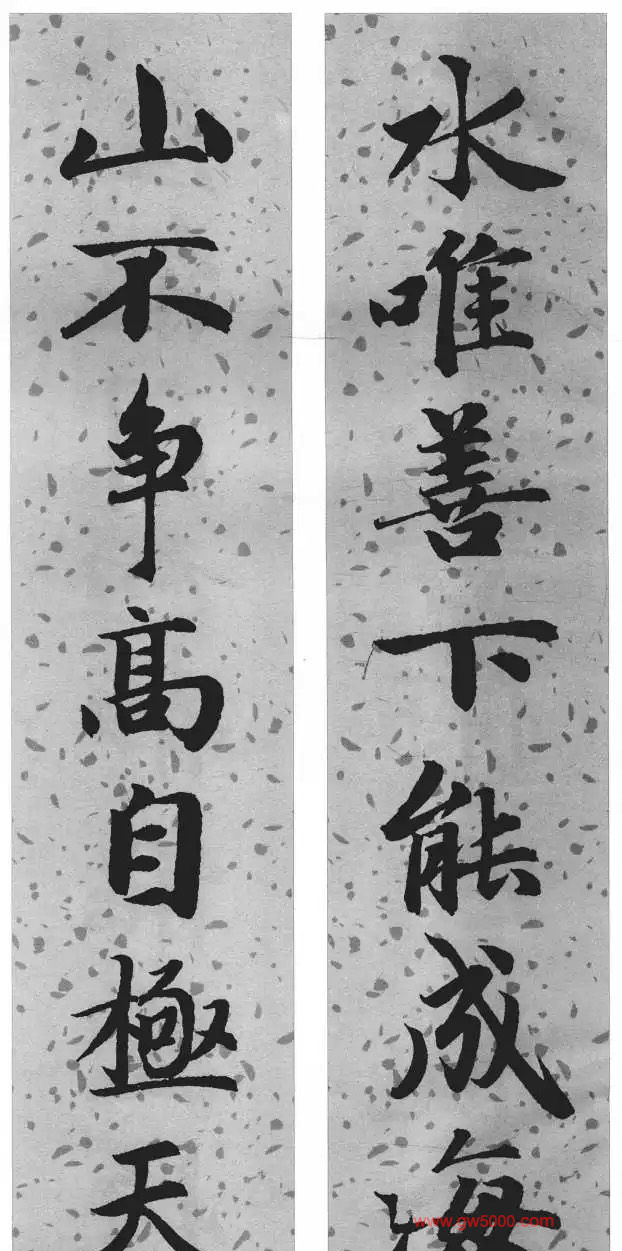 水唯善下能成海
山不争高自極天
www.gw5000.com